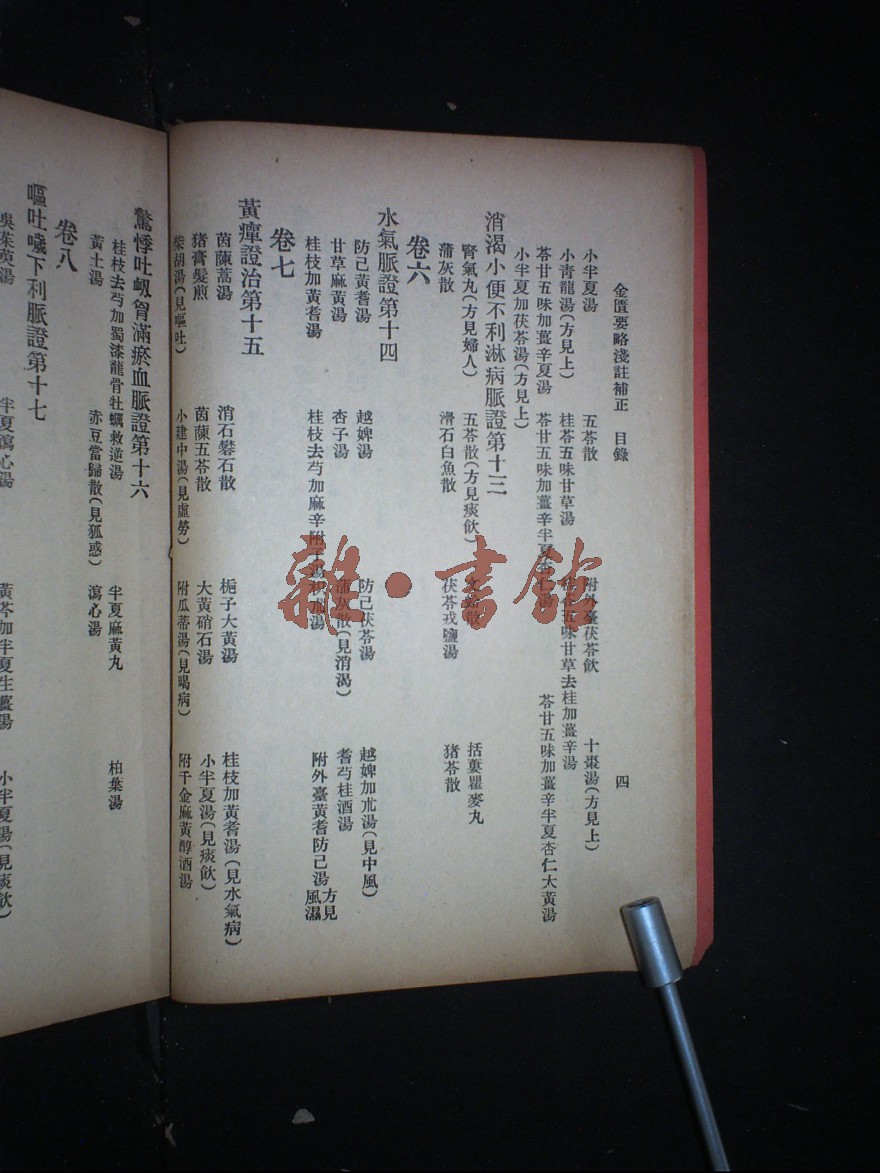 金匱要略淺註補正 目錄 四
小半夏湯 五苓散 附外臺茯苓飲 十棗湯(方見上)
小靑龍湯(方見上) 桂苓五味甘草湯 五味甘草去桂加薑辛湯
苓甘五味加薑辛夏湯 苓甘五味加薑辛半夏杏仁湯 苓甘五味加薑辛半夏杏仁大黃湯
小半夏加茯苓湯(方見上)
消渴小便不利淋病脈證第十三
腎氣丸(方見婦人) 五苓散(方見痰飲) 文蛤散 括蔞瞿麥丸
蒲灰散 滑石白魚散 茯苓戎鹽湯 猪苓散
卷六
水氣脈證第十四
防己黃耆湯 越婢湯 防己茯苓湯 越婢加朮湯(見中風)
甘草麻黃湯 杏子湯 蒲灰散(見消渴) 耆芍桂酒湯
桂枝加黃耆湯 桂枝去芍加麻辛附子湯 枳朮湯 附外臺黃耆防己湯方見風濕
卷七
黃癉證治第十五
茵蔯蒿湯 消石礬石散 梔子大黃湯 桂枝加黃耆湯(見水氣病)
猪膏髮煎 茵蔯五苓散 大黃硝石湯 小半夏湯(見痰飲)
柴胡湯(見嘔吐) 小建中湯(見虛勞) 附瓜蒂湯(見暍病) 附千金麻黃醇酒湯
驚悸吐衂胷滿瘀血脈證第十六
桂枝去芍加蜀漆龍骨牡蠣救逆湯 半夏麻黃丸 柏葉湯
黃土湯 赤豆當歸散(見狐惑) 瀉心湯
卷八
嘔吐噦下利脈證第十七
吳茱萸湯 半夏瀉心湯 黃芩加半夏生薑湯 小半夏湯(見痰飲)